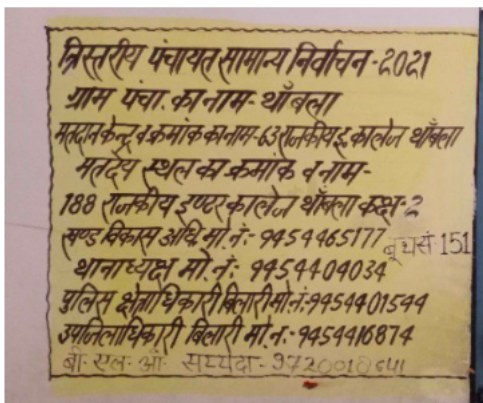 त्रिस्तरीय पंचायत सामान्य निर्वाचन-2021
ग्राम पंचा. का नाम- थाँबला
मतदान केन्द्र व क्रमांक का नाम-63 राजकीय इ. कालेज थाँबला
मतदेय स्थल का क्रमांक व नाम-
188 राजकीय इण्टर कालेज थाँबला कक्ष-2
खण्ड विकास अधि. मो.नं:- 9454465177
बूथ सं- 151
थानाध्यक्ष मो.नं: 9454404034
पुलिस क्षेत्राधिकारी बिलारी मो.नं:9454401544
उपजिलाधिकारी बिलारी मो.नं:-9454416874
बी. एल. ओ.